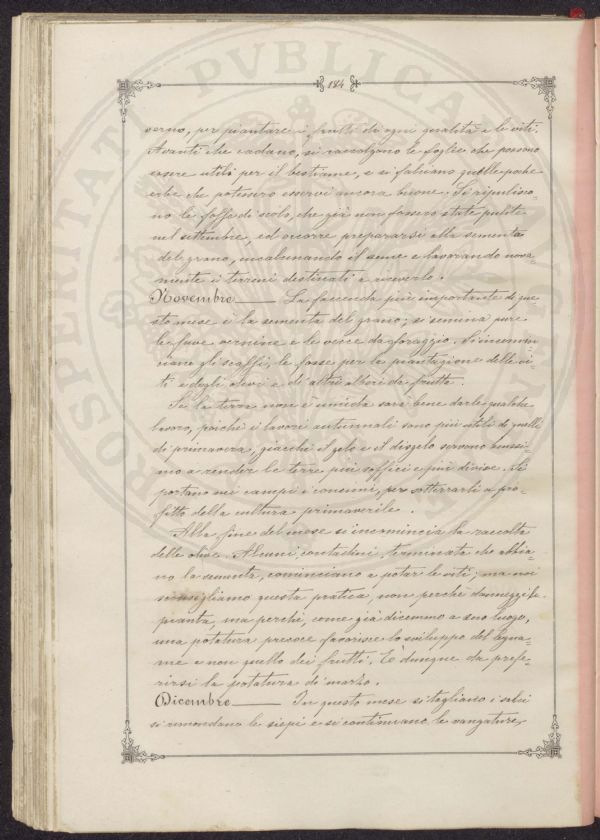 184
verno, per piantare i frutti di ogni qualità e le viti.
Avanti che cadano, si raccolgono le foglie che possono
essere utili per il bestiame, e si falciano quelle poche
erbe che potessero esservi ancora buone. Si ripulisco-
no le fosse di scolo, che già non fossero state pulite
nel settembre, ed occorre prepararsi alla sementa
del grano, incalcinando il seme e lavorando nova-
mente i terreni destinati a riceverlo.
Novembre — La faccenda più importante di que-
sto mese è la sementa del grano; si semina pure
le fave vernine e le vecce da foraggio. Si incomin-
ciano gli scassi, le fosse per la piantagione delle vi-
ti e degli olivi e di altri alberi da frutta.
Se la terra non è umida sarà bene darle qualche
lavoro, poichè i lavori autunnali sono più utili di quelli
di primavera, giacchè il gelo e il disgelo servono benissi-
mo a render le terre più soffici e più divise. Si
portano nei campi i concimi, per sotterrarli a pro-
fitto della cultura primaverile.
Alla fine del mese si incomincia la raccolta
delle olive. Alcuni contadini, terminata che abbia-
no la sementa, cominciano a potar le viti; ma noi
sconsigliamo questa pratica, non perchè danneggi la
pianta, ma perchè, come già dicemmo a suo luogo,
una potatura precoce favorisce lo sviluppo del legna-
me e non quello dei frutti. È dunque da prefe-
rirsi la potatura di marzo.
Dicembre — In questo mese si tagliano i salci
si rimondano le siepi e si continuano le vangature,
PROSPERITATI PVBLICAE